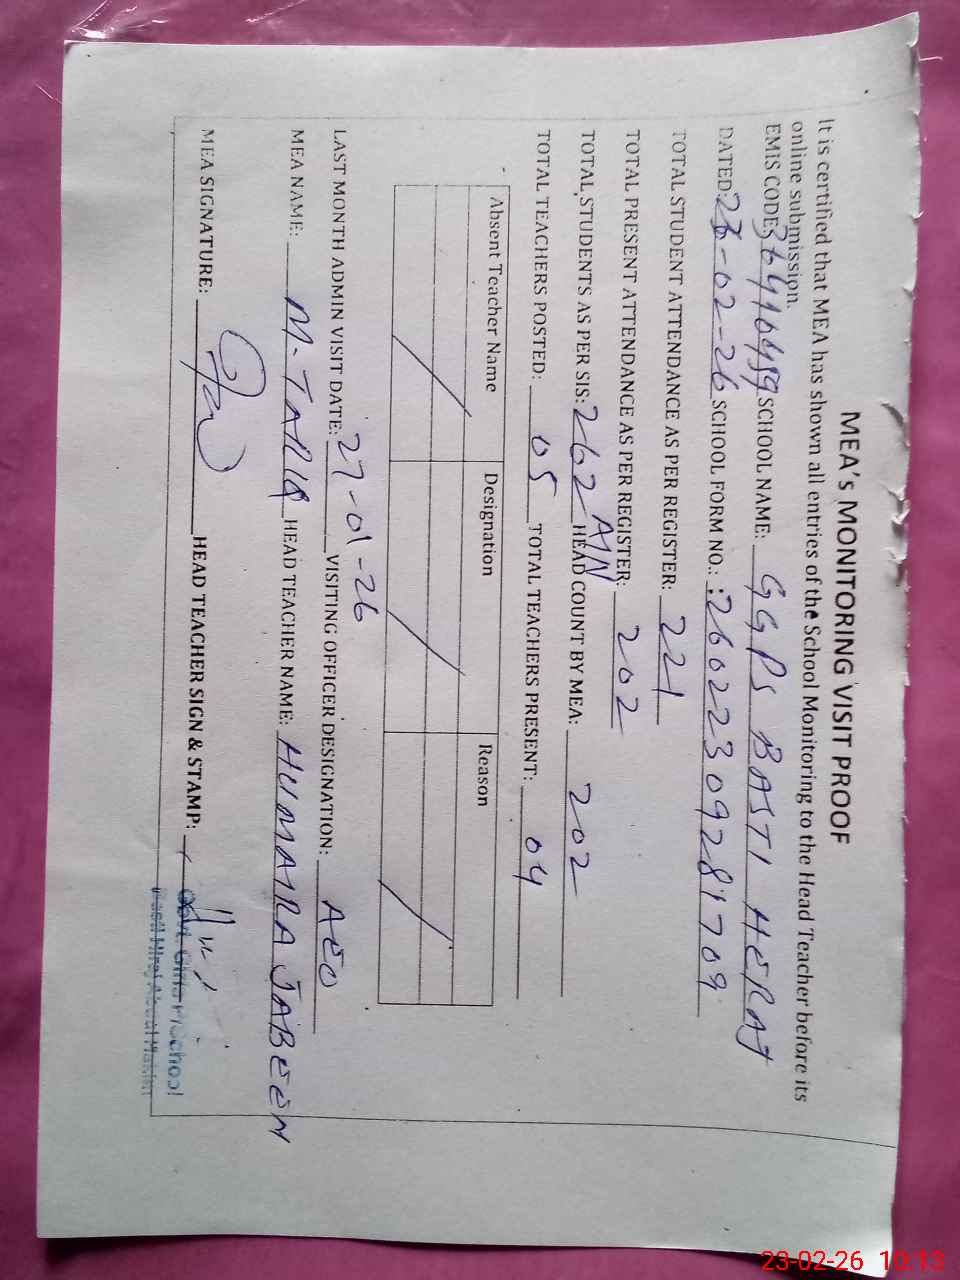 MEA's MONITORING VISIT PROOF
It is certified that MEA has shown all entries of the School Monitoring to the Head Teacher before its
online submission.
EMIS CODE: SCHOOL NAME: GGPS BASTI HERAJ
DATED: 23-02-26 SCHOOL FORM NO.: :26022309281709
TOTAL STUDENT ATTENDANCE AS PER REGISTER: 221
TOTAL PRESENT ATTENDANCE AS PER REGISTER: 202
TOTAL STUDENTS AS PER SIS: 262 HEAD COUNT BY MEA: 202
TOTAL TEACHERS POSTED: 05 TOTAL TEACHERS PRESENT: 04
Absent Teacher Name Designation Reason
LAST MONTH ADMIN VISIT DATE: 27-01-26 VISITING OFFICER DESIGNATION: AEO
MEA NAME: M-TARIQ HEAD TEACHER NAME: HUMAIRA JABEEN
MEA SIGNATURE: HEAD TEACHER SIGN & STAMP:
Govt. Girls P/School
23-02-26 10:13